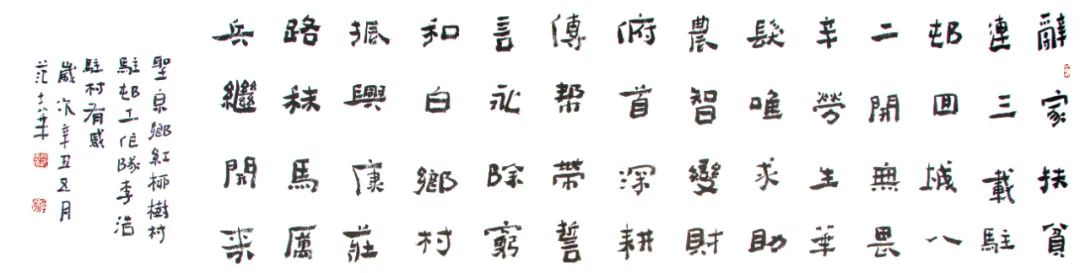 辭家扶貧
連三載駐
邨囬城八
二開無畏
辛勞生華
髮唯求助
農智變財
俯首深耕
傳帮帶誓
言永除窮
和白鄉村
振興康莊
路秣馬厲
兵繼開来
聖泉鄉紅柳樹村
駐邨工作隊李浩
駐村有感
歲次辛丑五月
范